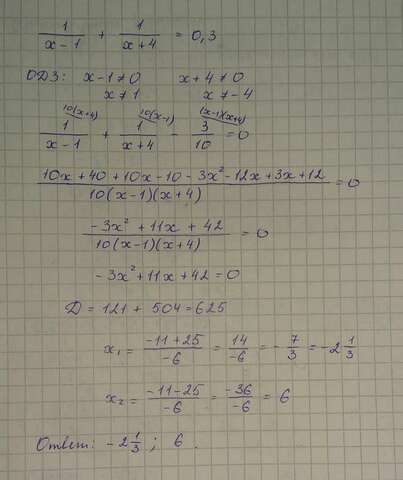 1/(x-1) + 1/(x+4) = 0,3
ОДЗ: x-1≠0 x+4≠0
x≠1 x≠-4
10(x+4) 10(x-1) (x-1)(x+4)
1/(x-1) + 1/(x+4) - 3/10 = 0
(10x+40+10x-10-3x²-12x+3x+12)/(10(x-1)(x+4)) = 0
(-3x²+11x+42)/(10(x-1)(x+4)) = 0
-3x²+11x+42=0
D=121+504=625
x₁ = (-11+25)/(-6) = 14/(-6) = -7/3 = -2 1/3
x₂ = (-11-25)/(-6) = (-36)/(-6) = 6
Ответ: -2 1/3; 6.